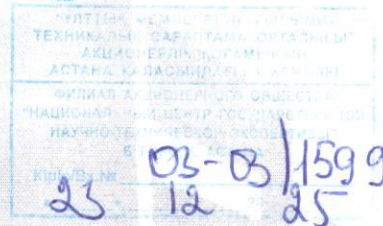 ТЕХНИКАЛЫҚ САРАПТАМА ОРТАЛЫҒЫ"
АКЦИОНЕРЛІК ҚОҒАМЫНЫҢ
АСТАНА ҚАЛАСЫНДАҒЫ
ФИЛИАЛ АКЦИОНЕРНОГО ОБЩЕСТВА
"НАЦИОНАЛЬНЫЙ ЦЕНТР ГОСУДАРСТВЕННОЙ
НАУЧНО-ТЕХНИЧЕСКОЙ ЭКСПЕРТИЗЫ"
03-03/1599
23 12 25